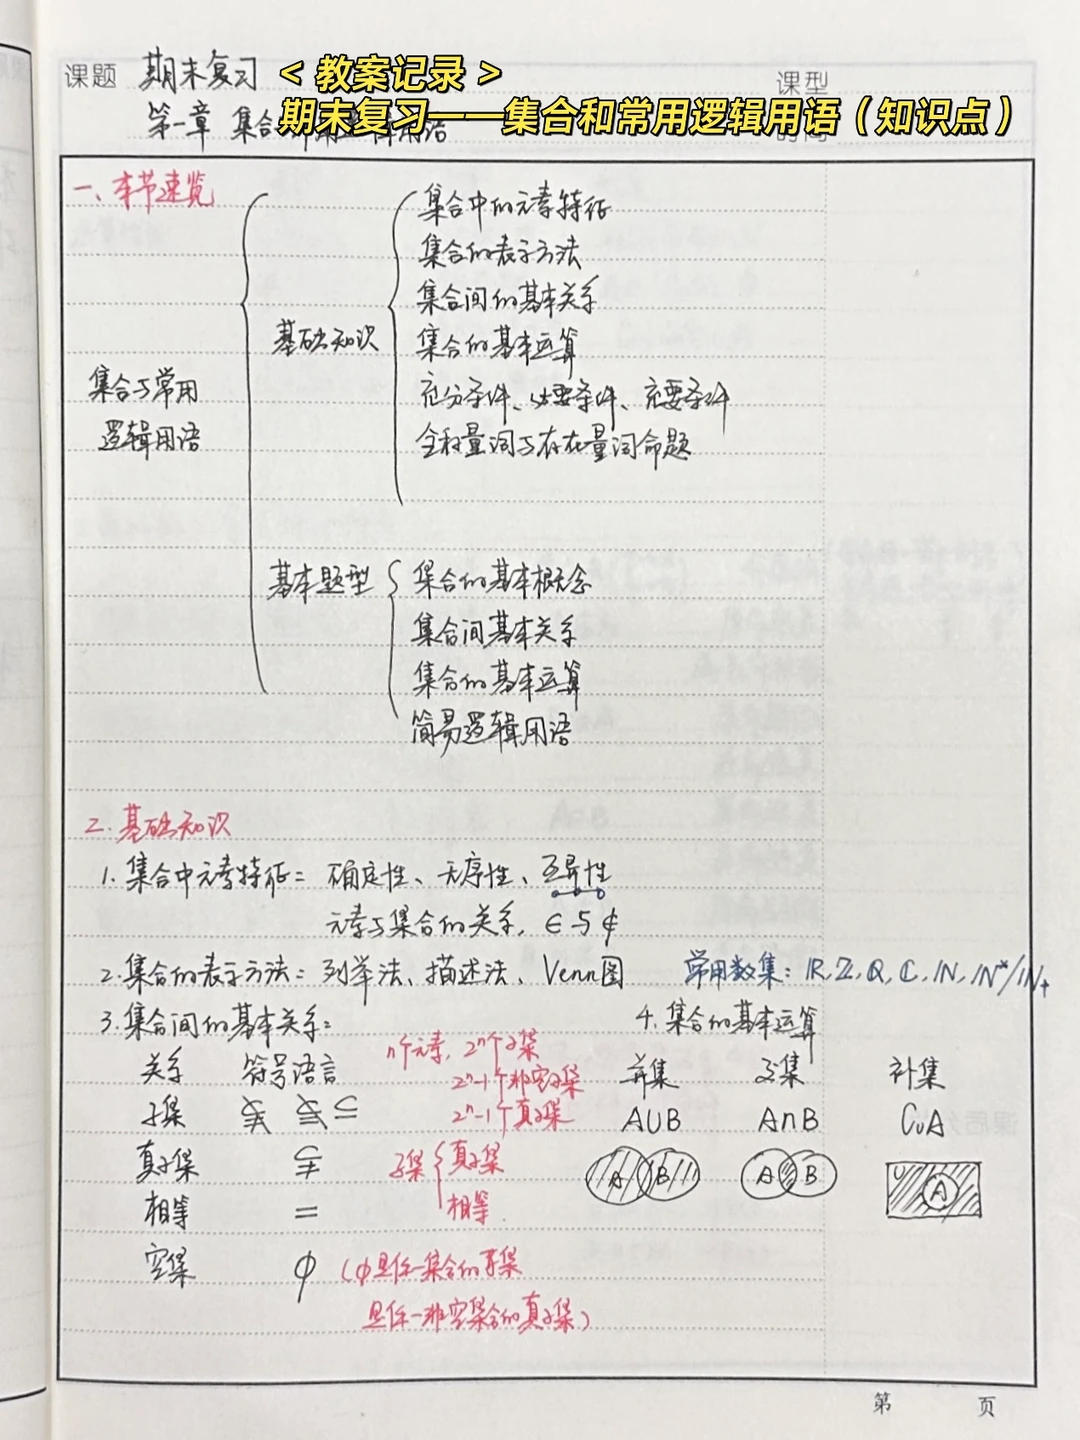 课题 期末复习
< 教案记录 >
课型
第一章 集合
期末复习——集合和常用逻辑用语（知识点）
一、本节速览
集合与常用
逻辑用语
基础知识
集合中的元素特征
集合的表示方法
集合间的基本关系
集合的基本运算
充分条件、必要条件、充要条件
全称量词与存在量词命题
基本题型
集合的基本概念
集合间基本关系
集合的基本运算
简易逻辑用语
2. 基础知识
1. 集合中元素特征: 确定性、无序性、互异性
元素与集合的关系, ∈与∉
2. 集合的表示方法: 列举法、描述法、Venn图 常用数集: R, Z, Q, C, N, N*/N₊
3. 集合间的基本关系:
n个元素, 2ⁿ个子集
2ⁿ-1个非空子集
2ⁿ-1个真子集
关系 符号语言
子集
真子集 ⫋
子集 { 真子集
相等
相等 =
空集 ϕ (ϕ是任一集合的子集
是任一非空集合的真子集)
4. 集合的基本运算
并集 交集 补集
A∪B A∩B ∁ᵤA
A B A B U A
第 页